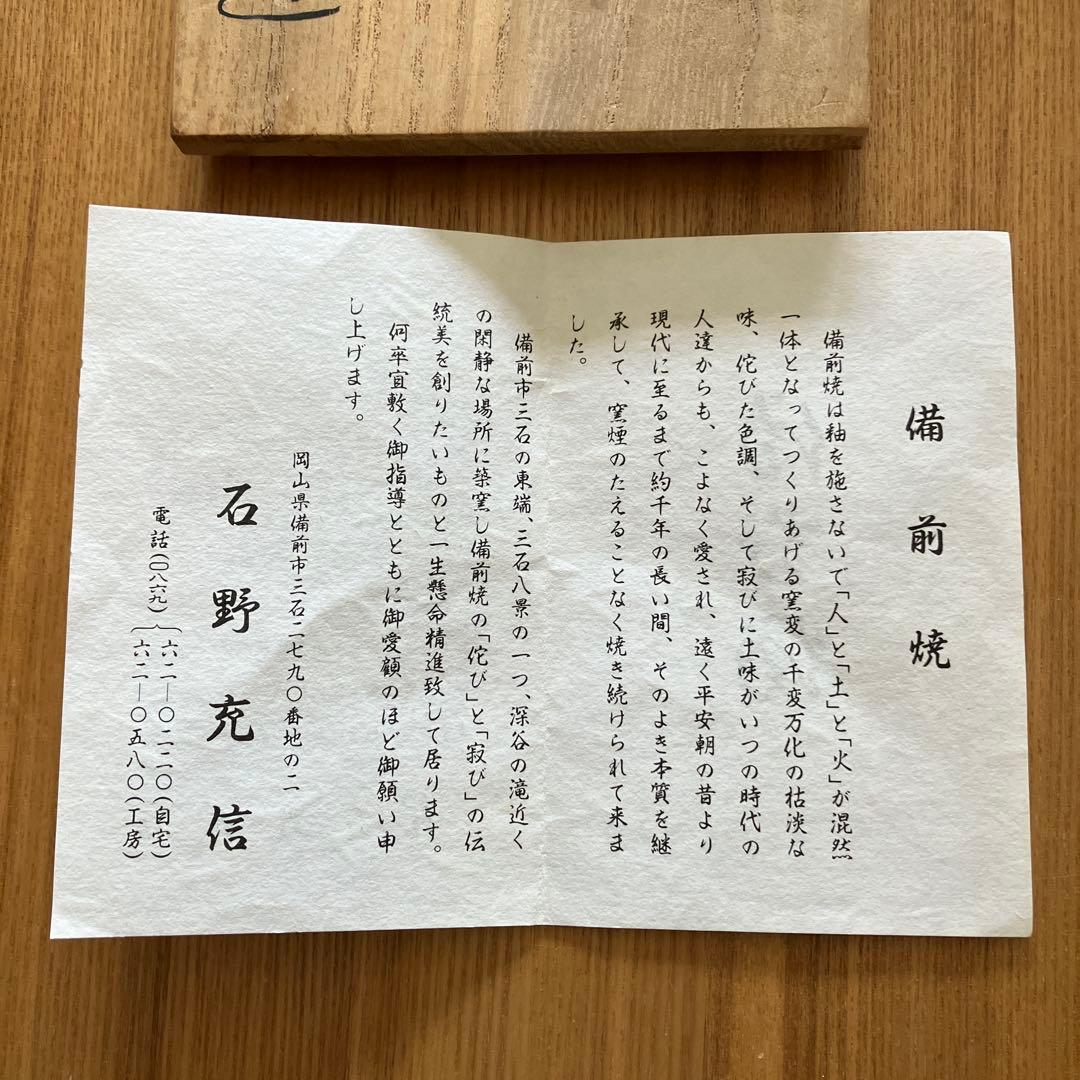 備前焼
備前焼は釉を施さないで「人」と「土」と「火」が混然
一体となってつくりあげる窯変の千変万化の枯淡な
味、侘びた色調、そして寂びに土味がいつの時代の
人達からも、こよなく愛され、遠く平安朝の昔より
現代に至るまで約千年の長い間、そのよき本質を継
承して、窯煙のたえることなく焼き続けられて来ま
した。
備前市三石の東端、三石八景の一つ、深谷の滝近く
の閑静な場所に築窯し備前焼の「侘び」と「寂び」の伝
統美を創りたいものと一生懸命精進致して居ります。
何卒宜敷く御指導とともに御愛顧のほど御願い申
し上げます。
岡山県備前市三石二七九〇番地の二
石野充信
電話(〇八六九){六二―〇二二〇(自宅)
六二―〇五八〇(工房)